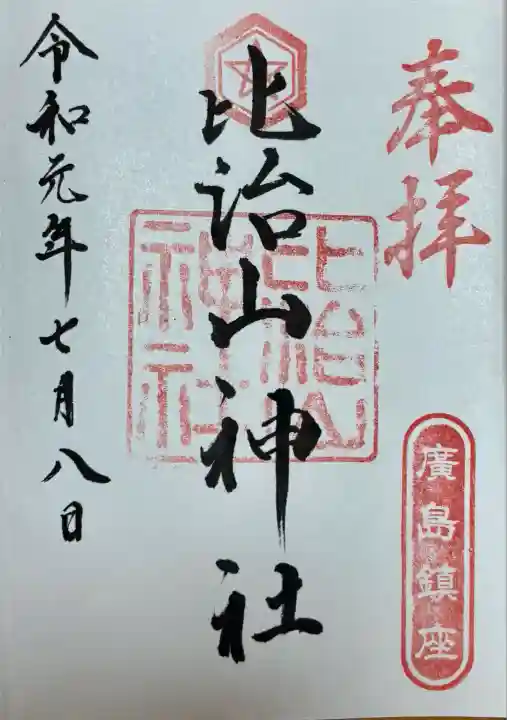 奉拝
廣島鎮座
比治山神社
比治山
神社
令和元年七月八日